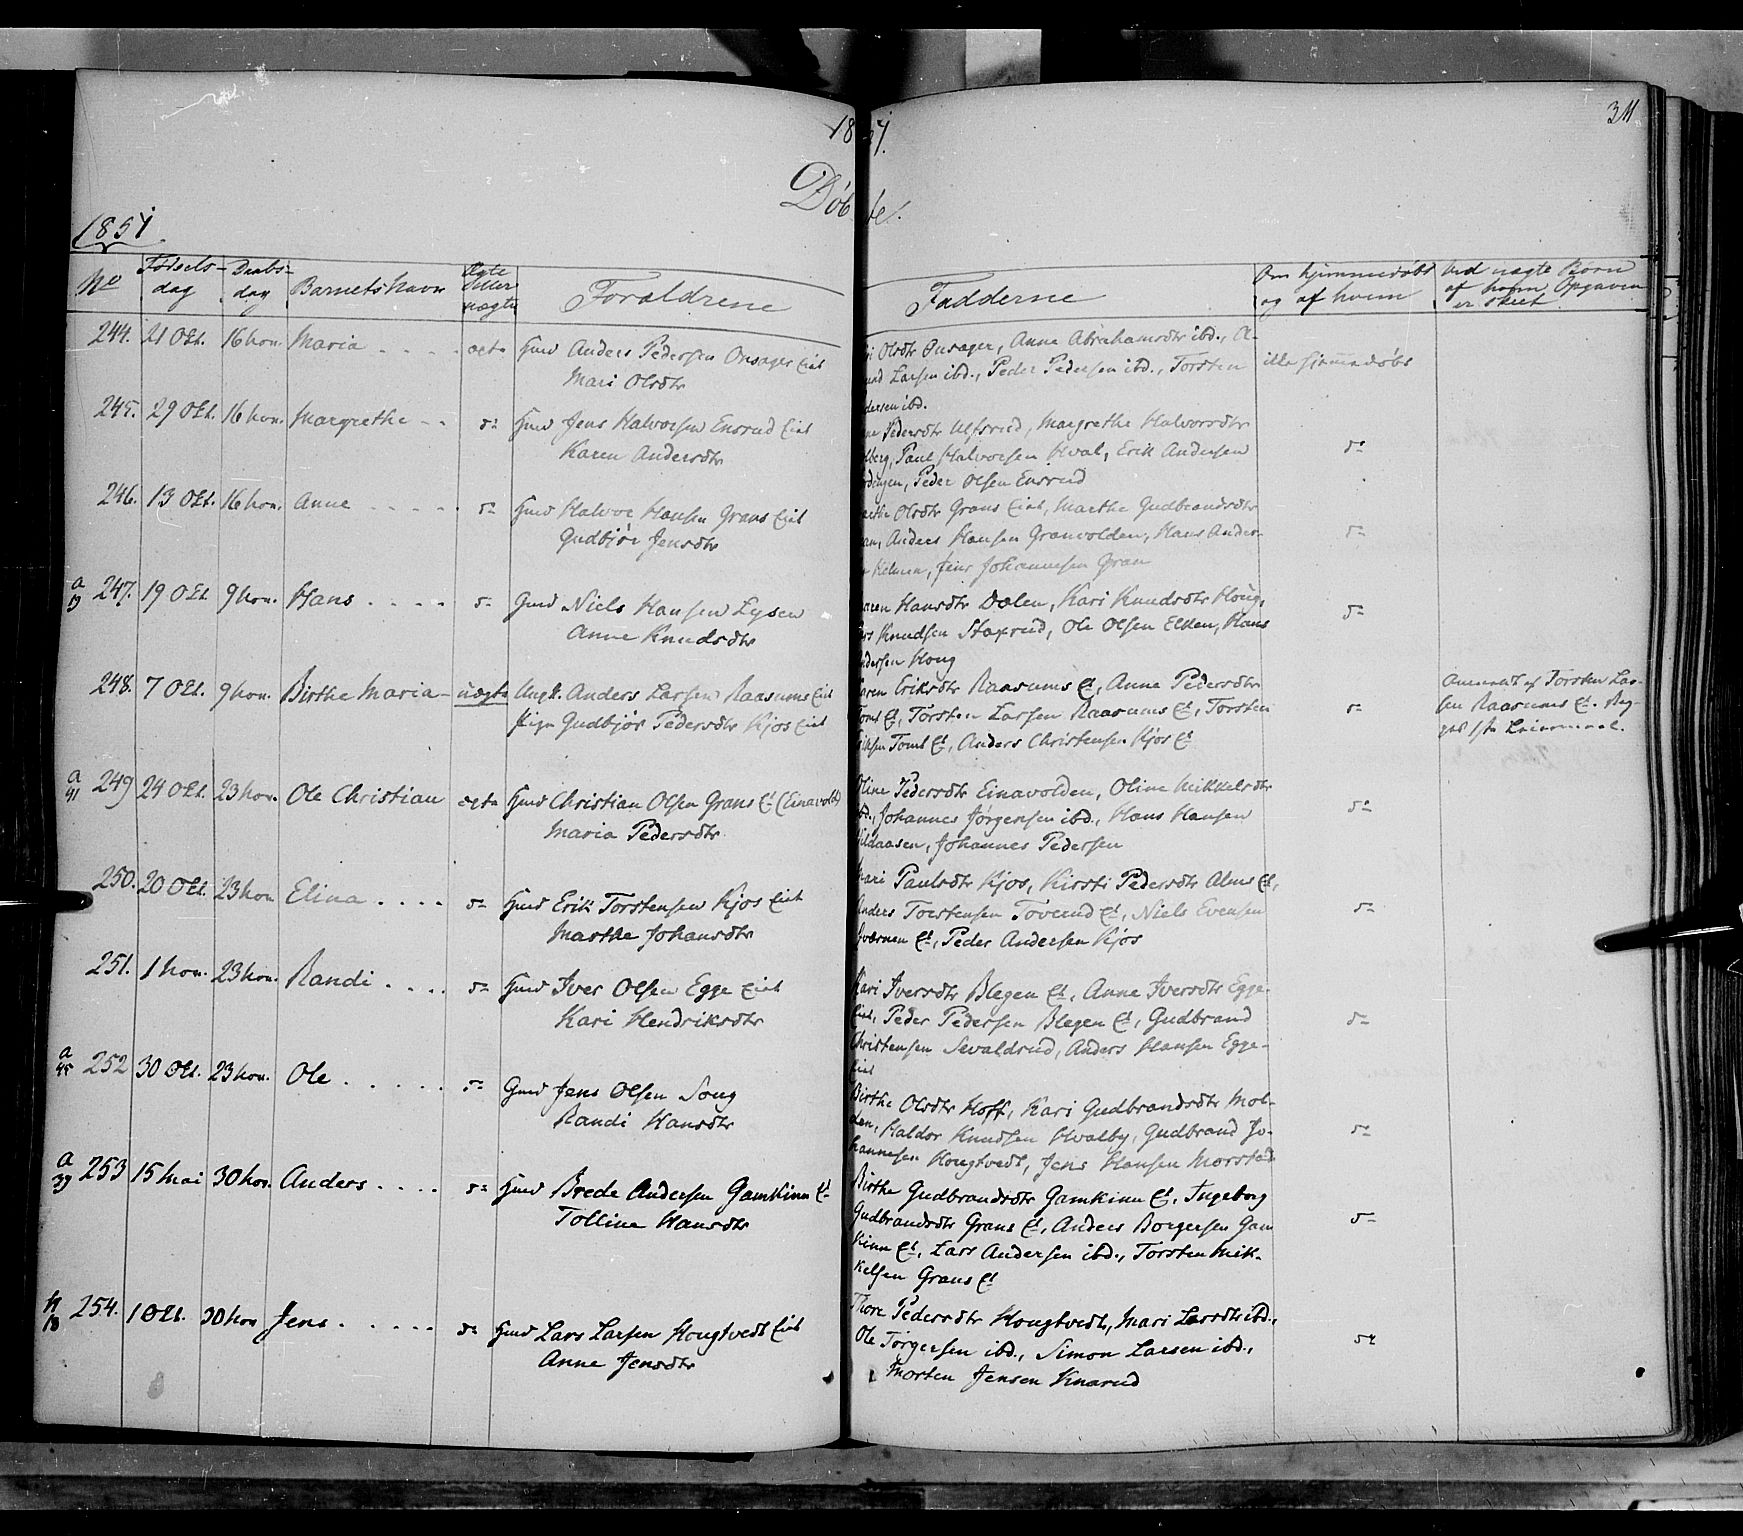 1851.
311
Døbte.
1851
No
Fødsels-
dag
Daabs-
dag
Barnets Navn
Ægte
eller
uægte
Forældrene
Fadderne
Om hjemmedøbt
og af hvem
Ved uægte Børn
af hvem Opgaven
er skeet.
244. 21 Okt. 16 Nov. Maria . . . . ægte Gmd Anders Pedersen Onsager Eiet
Mari Olsdtr
Olsdtr Onsager, Anne Abrahamsdtr ibd., A-
mund Larsen ibd., Peder Pedersen ibd., Torsten
Pedersen ibd.
ikke hjemmedøbt
245. 29 Okt. 16 Nov. Margrethe - - do Hmd Jens Halvorsen Ensrud Eiet
Karen Andersdtr
Pedersdtr Ulfsrud, Margrethe Halvorsdtr
Paul Halvorsen Hval, Erik Andersen
Peder Olsen Ensrud
do
246. 13 Okt. 16 Nov. Anne . . . . . do Hmd Halvor Hansen Grans Eiet
Gudbjør Jensdtr
Marthe Olsdtr Grans Eiet, Marthe Gudbrandsdtr
Gran, Anders Hansen Granvolden, Hans Ander-
Jens Johannesen Gran
do
a
19
247. 19 Okt. 9 Nov. Hans . . . . do Gmd Niels Hansen Lysen
Anne Knudsdtr
Karen Hansdtr Dælen, Kari Knudsdtr Houg,
Lars Knudsen Staxrud, Ole Olsen Elken, Hans
Andersen Houg
do
248. 7 Okt. 9 Nov. Birthe Maria - uægte Ungk. Anders Larsen Raasums Eiet
Pige Gudbjør Pedersdtr Kjos Eiet
Karen Eriksdtr Raasums Et, Anne Pedersdtr
Toms Et, Torsten Larsen Raasums Et, Torsten
Eriksen Toms Et, Anders Christensen Kjos Et
do
Anmeldt af Torsten Lar-
sen Raasums Et.
249 24 Okt. 23 Nov. Ole Christian ægte Hmd Christian Olsen Grans Et (Einavold)
Maria Pedersdtr
Oline Pedersdtr Einavolden, Oline Mikkelsdtr
ibd., Johannes Jørgensen ibd., Hans Hansen
Johannes Pedersen
do
250. 20 Okt. 23 Nov Elina . . . . do Hmd Erik Torstensen Kjos Eiet
Marthe Johansdtr
Mari Paulsdtr Kjos, Kirsti Pedersdtr Alms Et,
Anders Torstensen Toverud Et, Niels Evensen
Et, Peder Andersen Kjos
do
251. 1 Nov. 23 Nov. Randi . . . . do Hmd Iver Olsen Egge Eiet
Kari Hendriksdtr
Kari Iversdtr Blegen Et, Anne Iversdtr Egge-
Eiet, Peder Pedersen Blegen Et, Gudbrand
Christensen Sevaldrud, Anders Hansen Egge-
Eiet
do
252 30 Okt. 23 Nov. Ole . . . . . do Gmd Jens Olsen Soug
Randi Hansdtr
Birthe Olsdtr Hoff, Kari Gudbrandsdtr Mol-
den, Haldor Knudsen Hvalby, Gudbrand Jo-
hannesen Hougtvedt, Jens Hansen Morstad
do
a
39
253 15 Mai 30 Nov. Anders . . . . do Hmd Brede Andersen Gamkinn Et
Tolline Hansdtr
Birthe Gudbrandsdtr Gamkinn Et, Ingeborg
Gudbrandsdtr Grans Et, Anders Borgersen Gam
kinn Et, Lars Andersen ibd., Torsten Mik-
kelsen Grans Et
do
254. 1 Okt. 30 Nov Jens . . . . . do Hmd Lars Larsen Hougtvedt Eiet
Anne Jensdtr
Thore Pedersdtr Hougtvedt, Mari Larsdtr ibd.,
Ole Torgersen ibd., Simon Larsen ibd.,
Morten Jensen Knarud
do